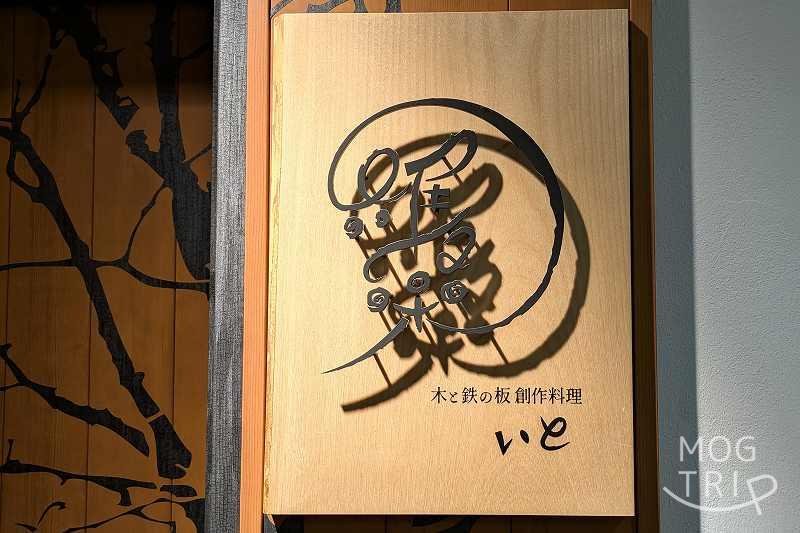 木と鉄の板 創作料理
いと
MOG
TRIP